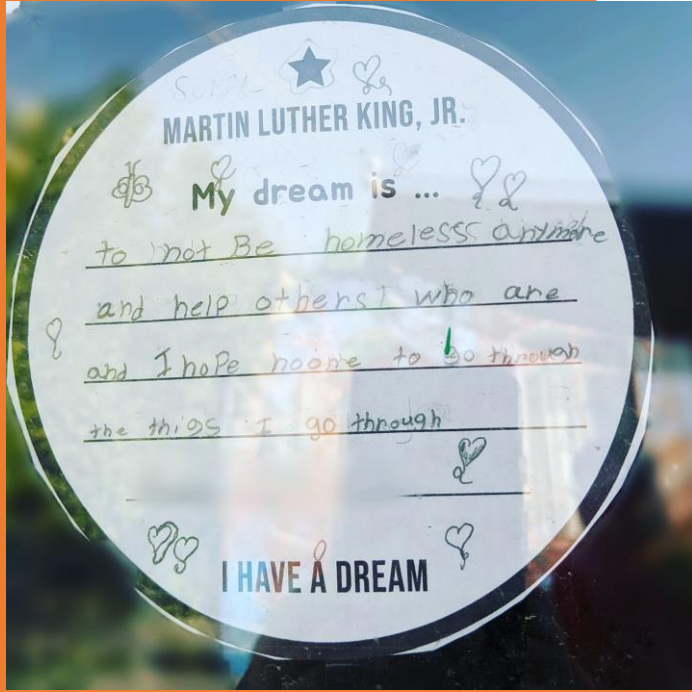 MARTIN LUTHER KING, JR.
My dream is ...
to not Be homelesss anymore
and help others! who are
and I hope noone to go through
the thigs I go through
I HAVE A DREAM